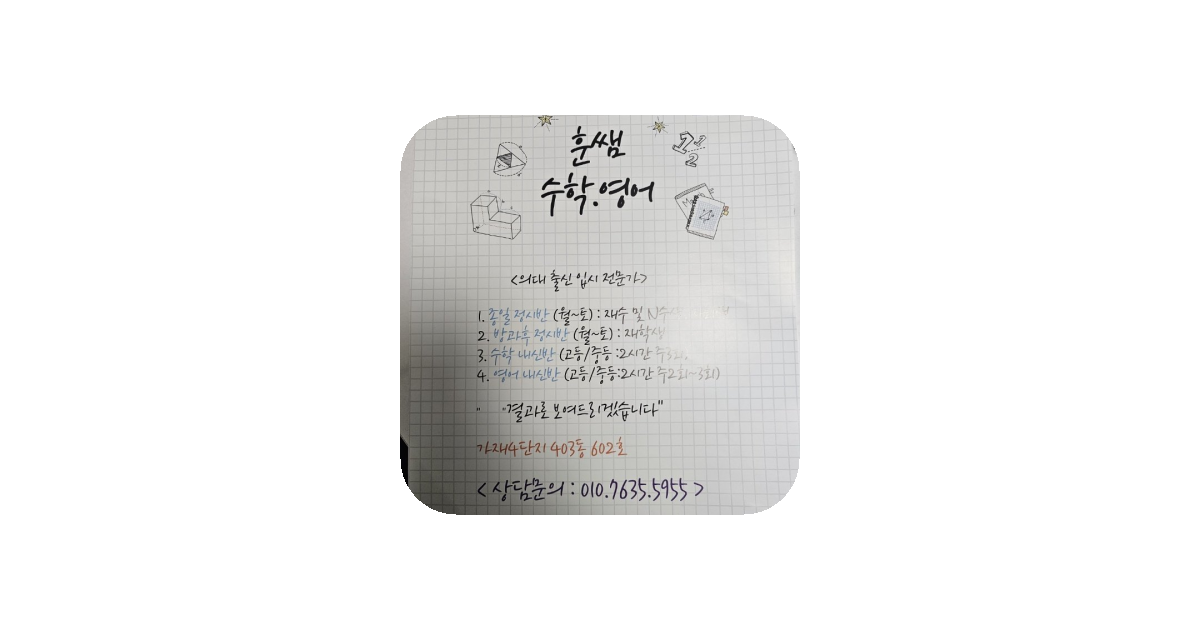 훈쌤
수학.영어
<의대 출신 입시 전문가>
1. 종일 정시반 (월~토) : 재수 및 N수
2. 방과후 정시반 (월~토) : 재학생
3. 수학 내신반 (고등/중등 : 2시간 주3회)
4. 영어 내신반 (고등/중등:2시간 주2회~3회)
"결과로 보여드리겠습니다"
가재4단지 403동 602호
<상담문의 : 010.7635.5955>